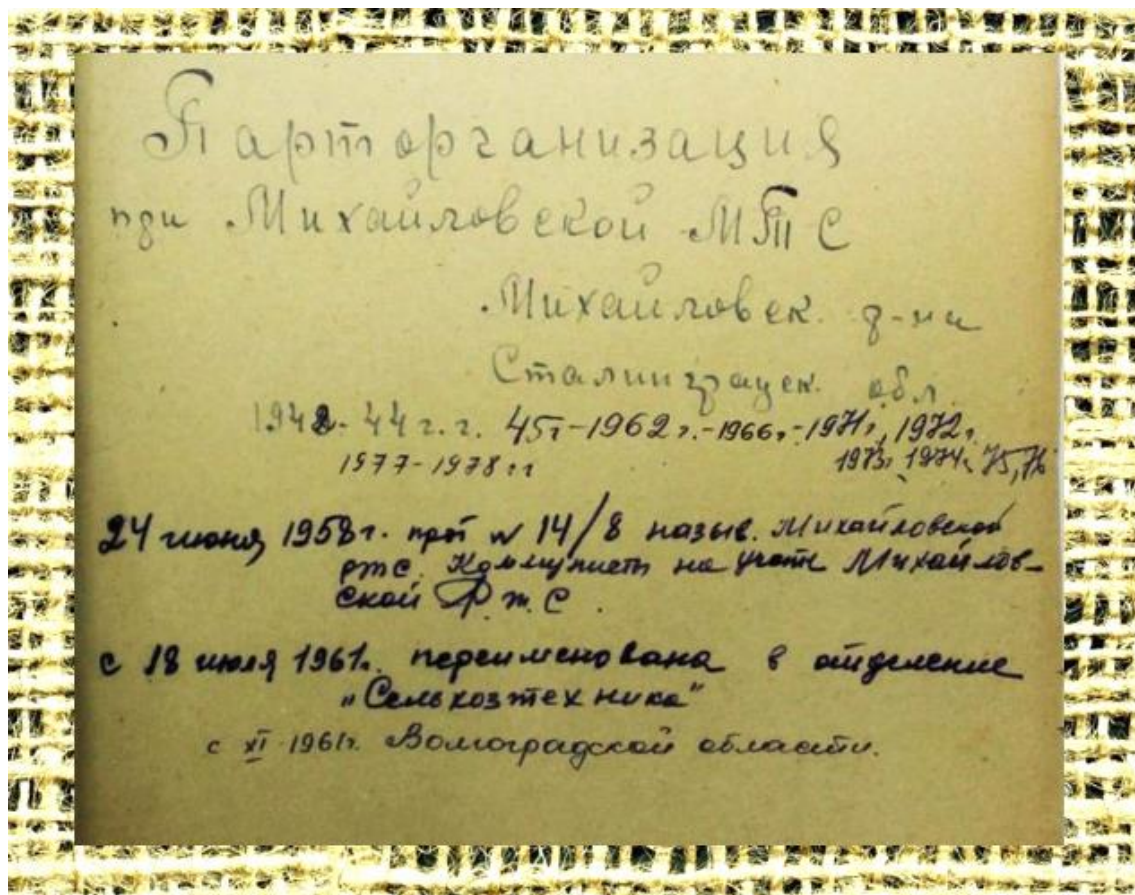 Парторганизация
при Михайловской МТС
Михайловск. р-на
Сталинградск. обл.
1942-44 г.г. 45г-1962г.-1966г-1971г, 1972г
1977-1978 гг 1973г, 1974г, 75,76
24 июня 1958г. прот № 14/8 назыв. Михайловской
РТС. Коммунисты на учете Михайлов-
ской Р.Т.С.
с 18 июля 1961г. переименована в отделение
"Сельхозтехника"
с XI-1961г. Волгоградской области.